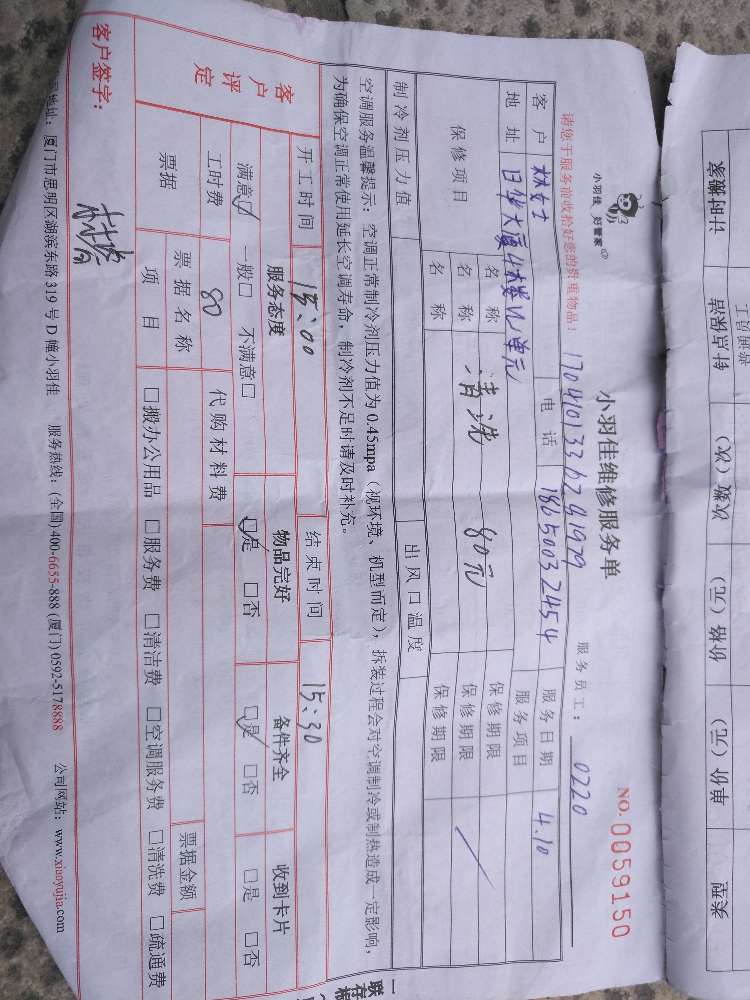 计时搬家
钟点保洁
工官旗舰
次数（次）
价格（元）
单价（元）
类型
小羽佳 好管家
小羽佳维修服务单
NO.0059150
请您于服务前收拾好您的贵重物品！
服务员工： 0220
客户 林女士 电话 18650032454 服务日期 4.10
地址 日华大厦 服务项目
保修项目 名称 清洗 80元 保修期限
名称 保修期限
名称 保修期限
制冷剂压力值 出风口温度
空调服务温馨提示：空调正常制冷剂压力值为0.45mpa（视环境、机型而定），拆装过程会对空调制冷或制热造成一定影响，
为确保空调正常使用延长空调寿命，制冷剂不足时请及时补充。
开工时间 15:00 结束时间 15:30
客户评定 服务态度 物品完好 备件齐全 收到卡片
满意□ 一般□ 不满意□ □是 □否 □是 □否 □是 □否
工时费 80 代购材料费
票据 票据名称 票据金额
项目 □搬办公用品 □服务费 □清洁费 □空调服务费 □清洗费 □疏通费
客户签字：
地址：厦门市思明区湖滨东路319号D幢小羽佳 服务热线：(全国)400-6655-888 (厦门) 0592-5178888 公司网站：www.xiaoyujia.com